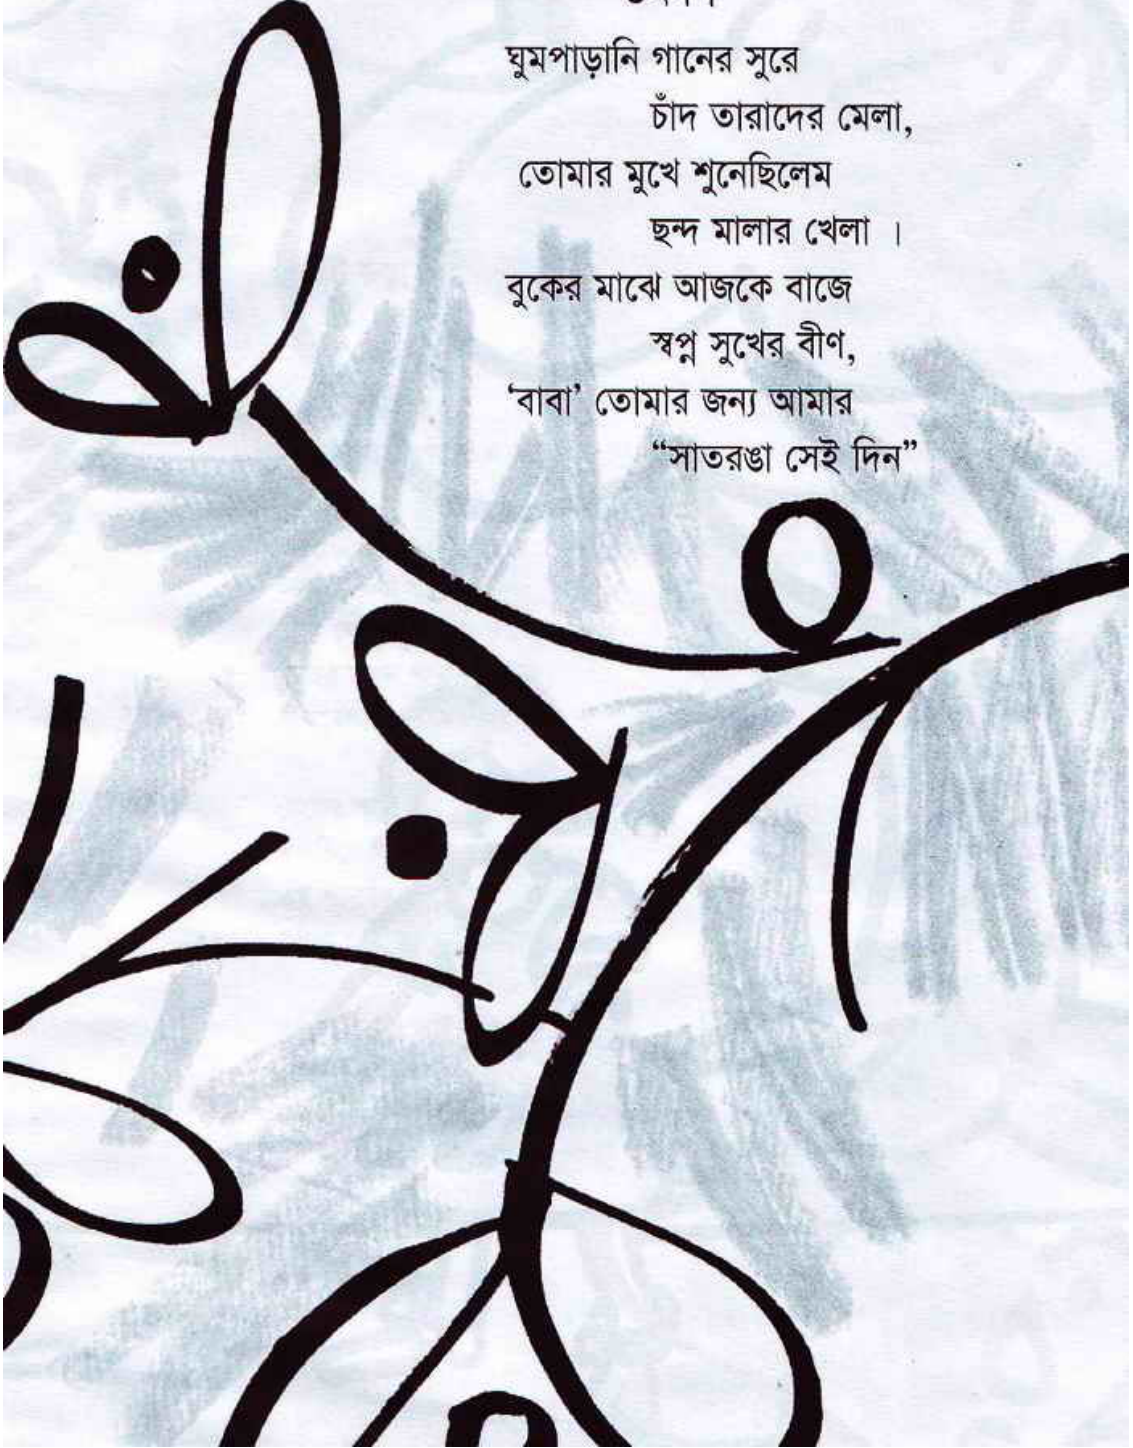 ঘুমপাড়ানি গানের সুরে
চাঁদ তারাদের মেলা,
তোমার মুখে শুনেছিলেম
ছন্দ মালার খেলা ।
বুকের মাঝে আজকে বাজে
স্বপ্ন সুখের বীণ,
‘বাবা’ তোমার জন্য আমার
“সাতরঙা সেই দিন”